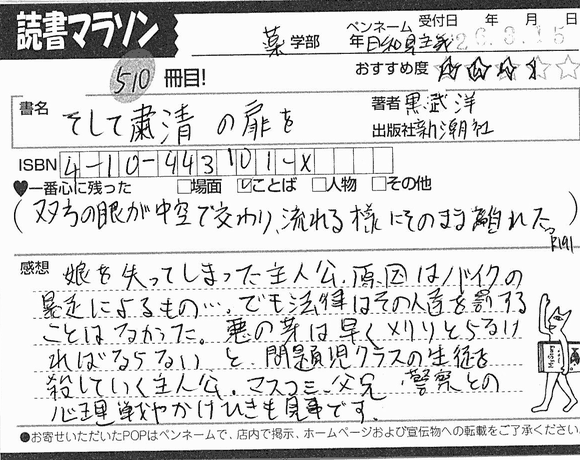 読書マラソン
薬 学部 年 ペンネーム 日和見主義 受付日 年 月 日
26.3.15
510 冊目! おすすめ度
書名 そして粛清の扉を 著者 黒武洋
出版社 新潮社
ISBN 4-10-443101-X
♥一番心に残った □場面 ☑ことば □人物 □その他
(双方の眼が中空で交わり、流れる様にそのまま離れた。)
P.191
感想 娘を失ってしまった主人公。原因はバイクの
暴走によるもの…。でも法律はその人達を罰する
ことはなかった。悪の芽は早くメリリとらなけ
ればならない と 問題児クラスの生徒を
殺していく主人公。マスコミ、父兄、警察との
心理戦やかけひきも見事です。
●お寄せいただいたPOPはペンネームで、店内で掲示、ホームページおよび宣伝物への転載をご了承ください